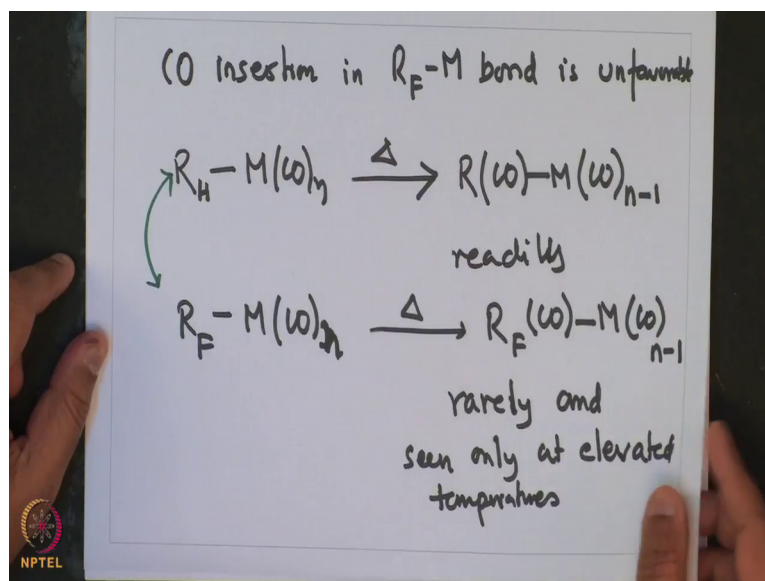 CO insertion in R_F-M bond is unfavourable
R_H - M(CO)_n →^Δ R(CO)-M(CO)_{n-1}
readily
R_F - M(CO)_n →^Δ R_F(CO)-M(CO)_{n-1}
rarely and
seen only at elevated
temperatures
NPTEL